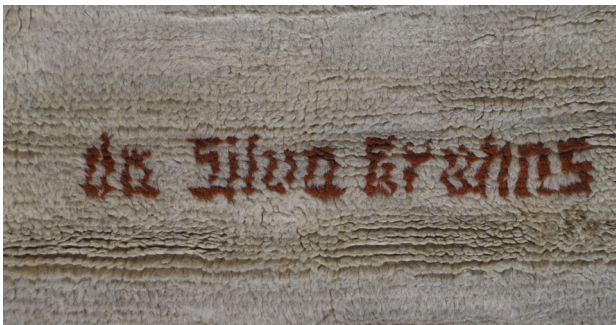 da Silva Bruhns